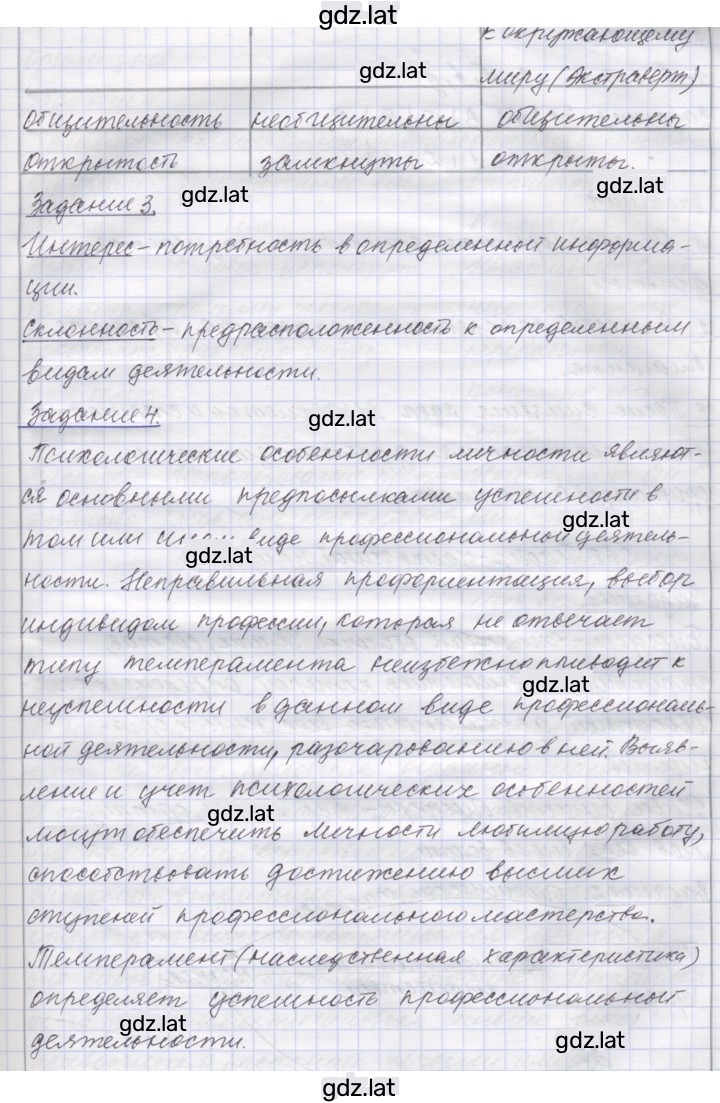 gdz.lat
к окружающему
gdz.lat
миру (Экстраверт)
общительность необщительны общительны
открытость замкнуты открыты.
gdz.lat
Задание 3.
gdz.lat
Интерес - потребность в определенной информа-
ции.
Склонность - предрасположенность к определенным
видам деятельности.
Задание 4.
gdz.lat
Психологические особенности личности являют-
ся основными предпосылками успешности в
gdz.lat
том или виде профессиональной деятель-
gdz.lat
ности. Неправильная профориентация, выбор
индивидом профессии, которая не отвечает
типу темперамента неизбежно приводит к
gdz.lat
неуспешности в данном виде профессиональ-
ной деятельности, разочарованию в ней. Выяв-
ление и учет психологических особенностей
gdz.lat
могут обеспечить личности любимую работу,
способствовать достижению высших
ступеней профессионального мастерства.
Темперамент (наследственная характеристика)
определяет успешность профессиональной
gdz.lat
деятельности.
gdz.lat
gdz.lat